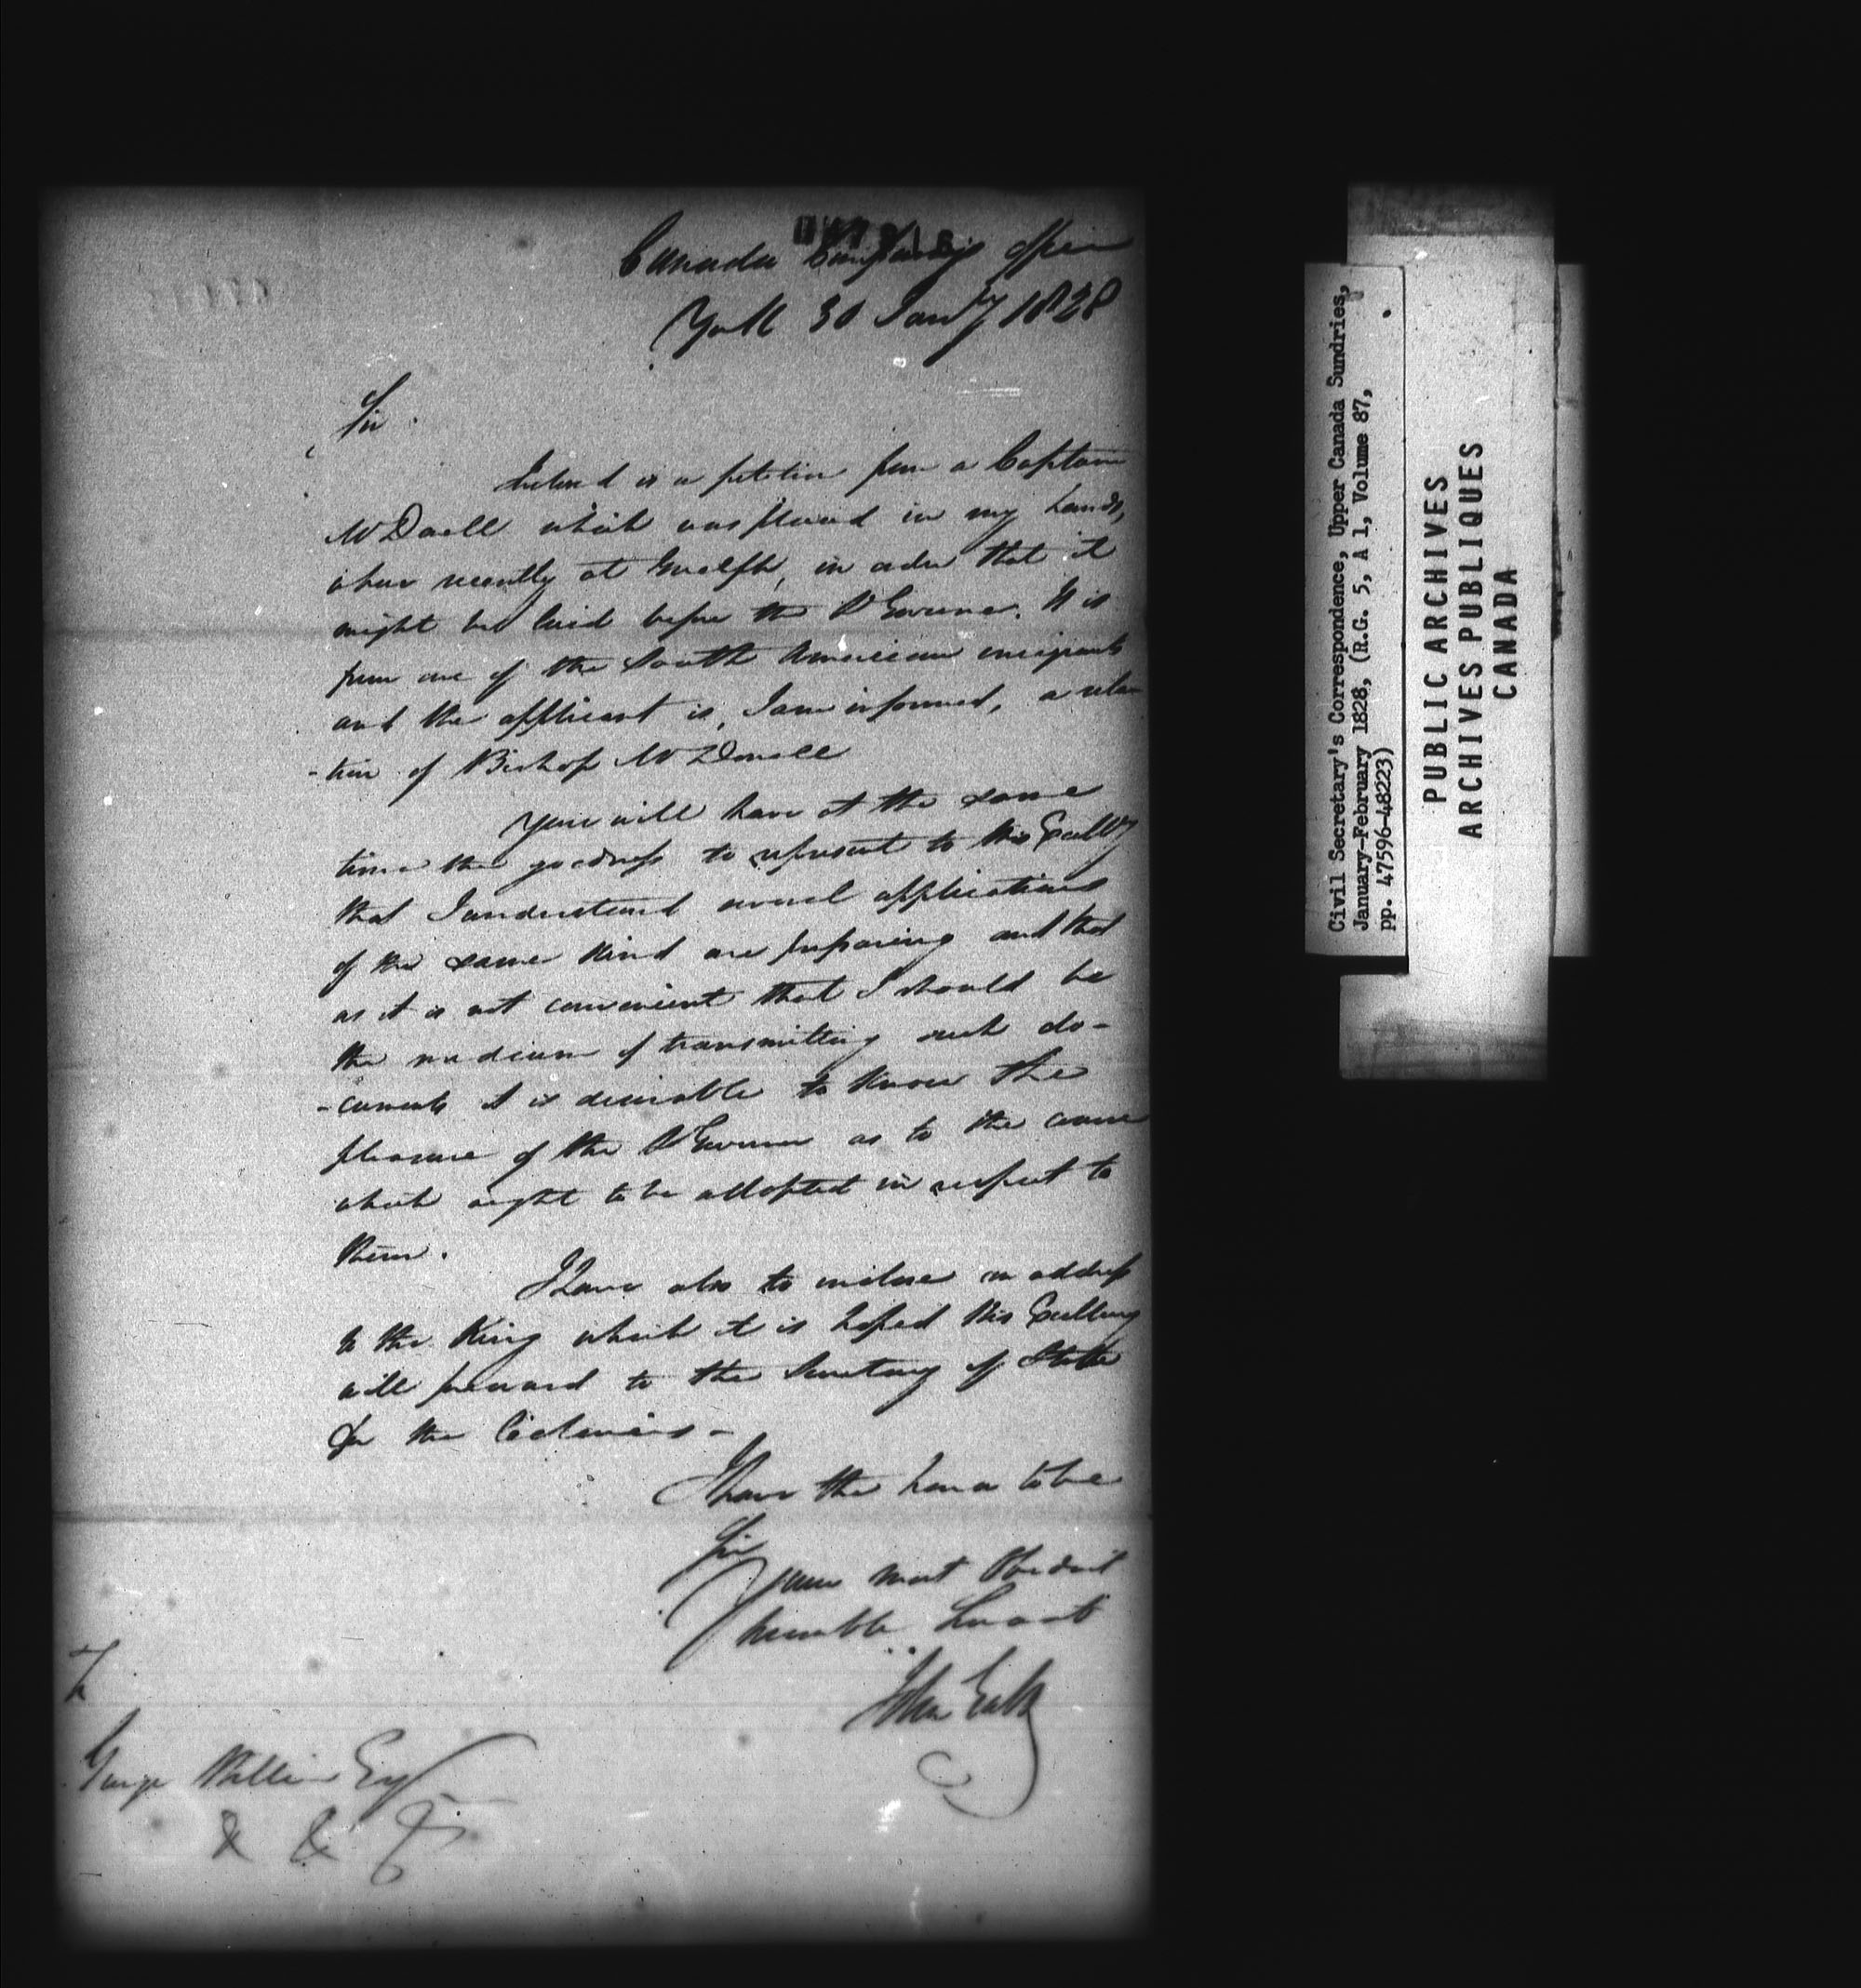 Canada Company's Office
York 30 Jany 1828
Sir
Inclosed is a petition from a Captain
McDonell which was placed in my hands,
when recently at Guelph, in order that it
might be laid before the Lt Governor. It is
from one of the South American emigrants
and the applicant is, I am informed, a rela-
-tion of Bishop McDonell
You will have at the same
time the goodness to represent to His Excelly
that I understand several applications
of the same kind are preparing and that
as it is not convenient that I should be
the medium of transmitting such do-
-cuments it is desirable to know the
pleasure of the Lt Governor as to the course
which ought to be addopted in respect to
them.
I have also to inclose an address
to the King which it is hoped His Excellency
will forward to the Secretary of State
for the Colonies -
I have the honor to be
Sir
Your most Obedient
humble Servant
John Galt
To
George Hillier Esqr
& & &
Civil Secretary's Correspondence, Upper Canada Sundries,
January-February 1828, (R.G. 5, A 1, Volume 87,
pp. 47596-48223)
PUBLIC ARCHIVES
ARCHIVES PUBLIQUES
CANADA